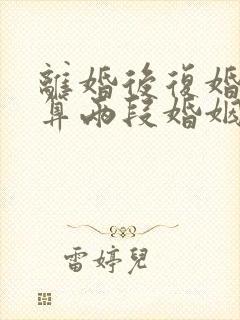 離婚後復婚
算兩段婚姻
雷婷兒